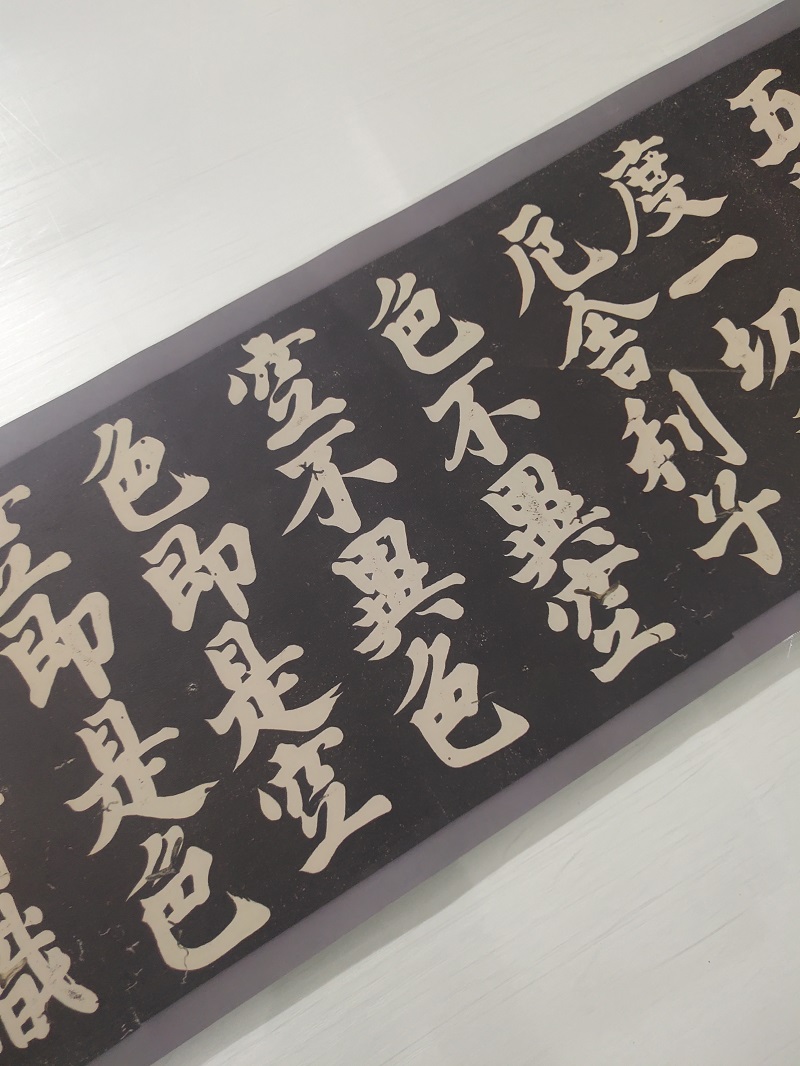 五
度一切
厄舍利子
色不異空
空不異色
色即是空
空即是色
識